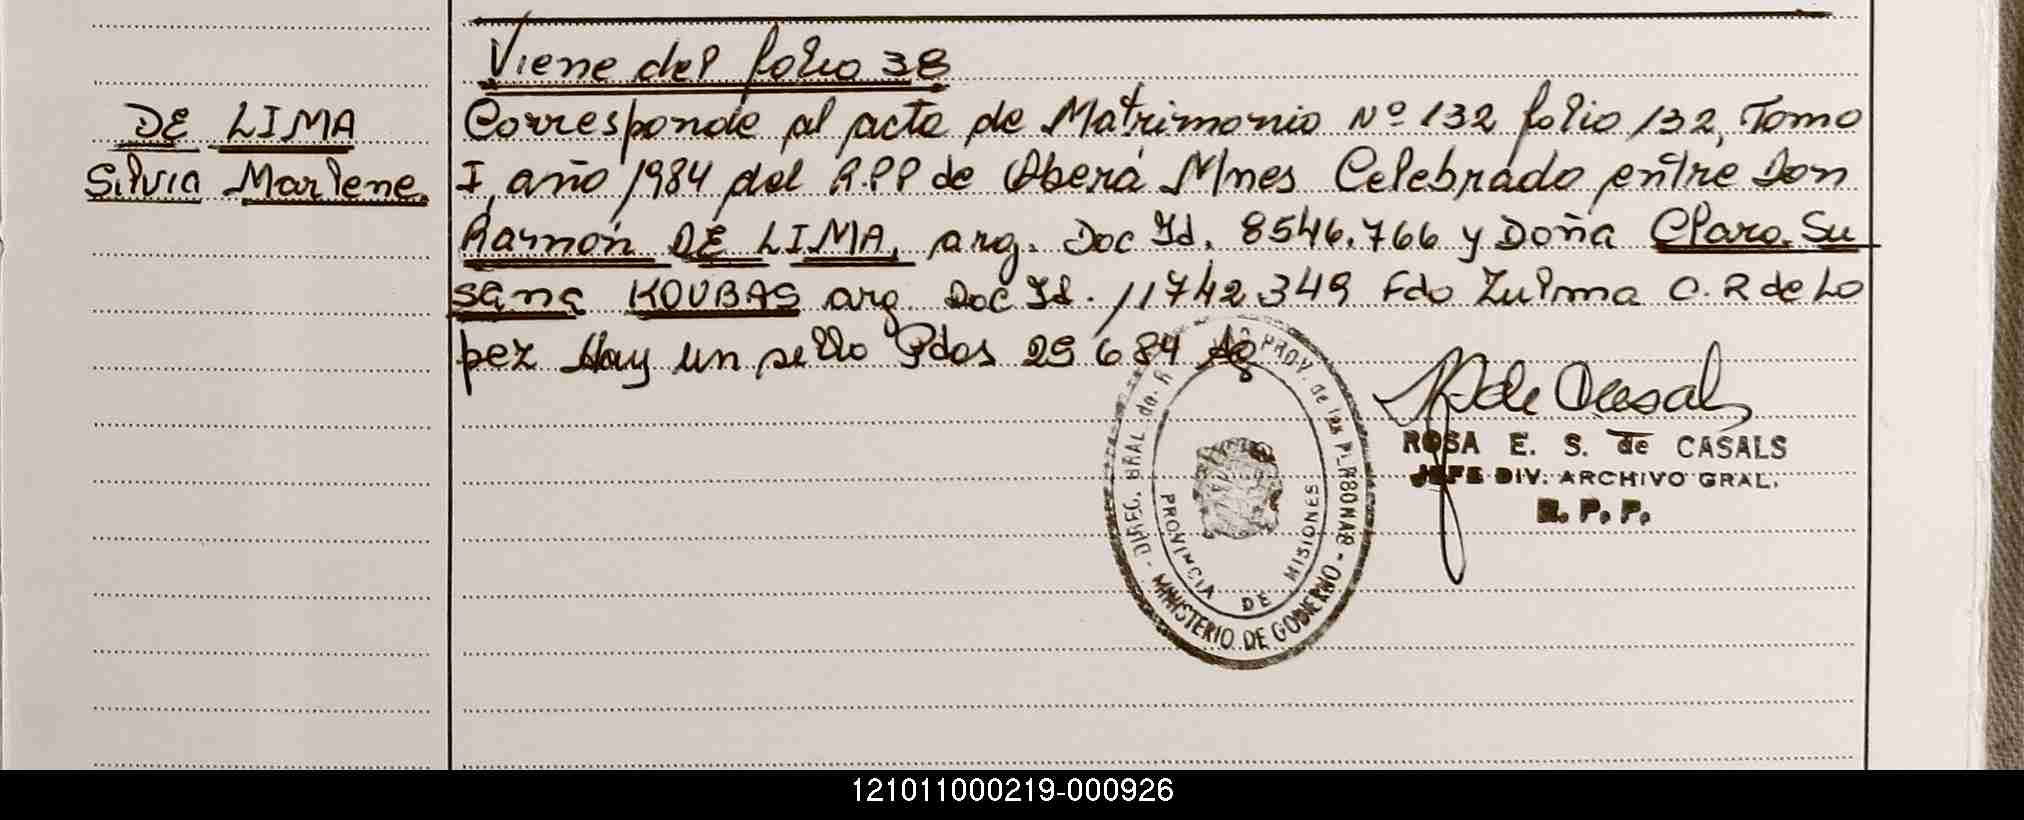 Viene del folio 38
DE LIMA
Silvia Marlene.
Corresponde al acta de Matrimonio Nº 132 folio 132, Tomo
I, año 1984 del R.P.P de Oberá Mnes Celebrado entre Don
Ramón DE LIMA, arg. Doc Id. 8546.766 y Doña Clara Su
sana KOUBAS arg. Doc Id. 11742349 Fdo Zulma O. R de Lo
pez Hay un sello Pdas 29 6 84
ROSA E. S. de CASALS
JEFE DIV. ARCHIVO GRAL.
R. P. P.
DIREC. GRAL de R PROV. de las PERSONAS - MINISTERIO DE GOBIERNO -
PROVINCIA DE MISIONES
121011000219-000926